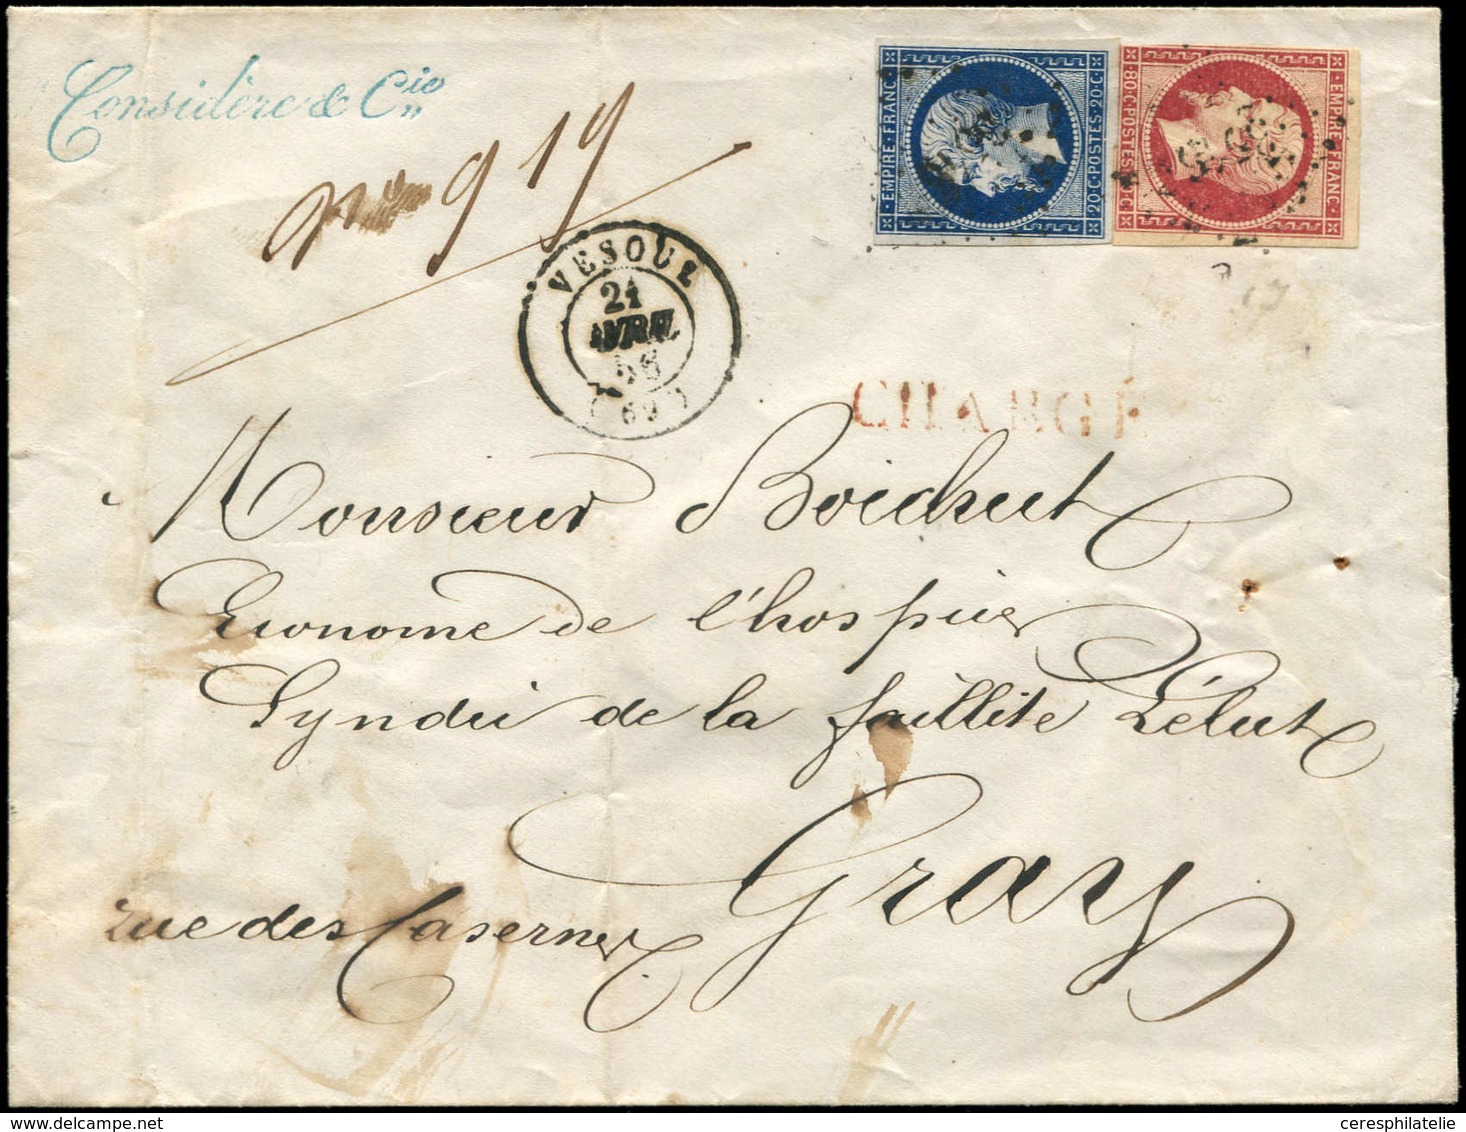 Considère & Cie
919
EMPIRE · FRANC ·
20 · C · POSTES · 20 · C ·
EMPIRE · FRANC ·
80 · C · POSTES
VESOUL
21
AVRIL
58
(69)
CHARGÉ
Monsieur Boichut
Econome de l'hospice
Syndic de la faillite Lélut
Gray
rue des Casernes
ceresphilatelie
delcampe.net